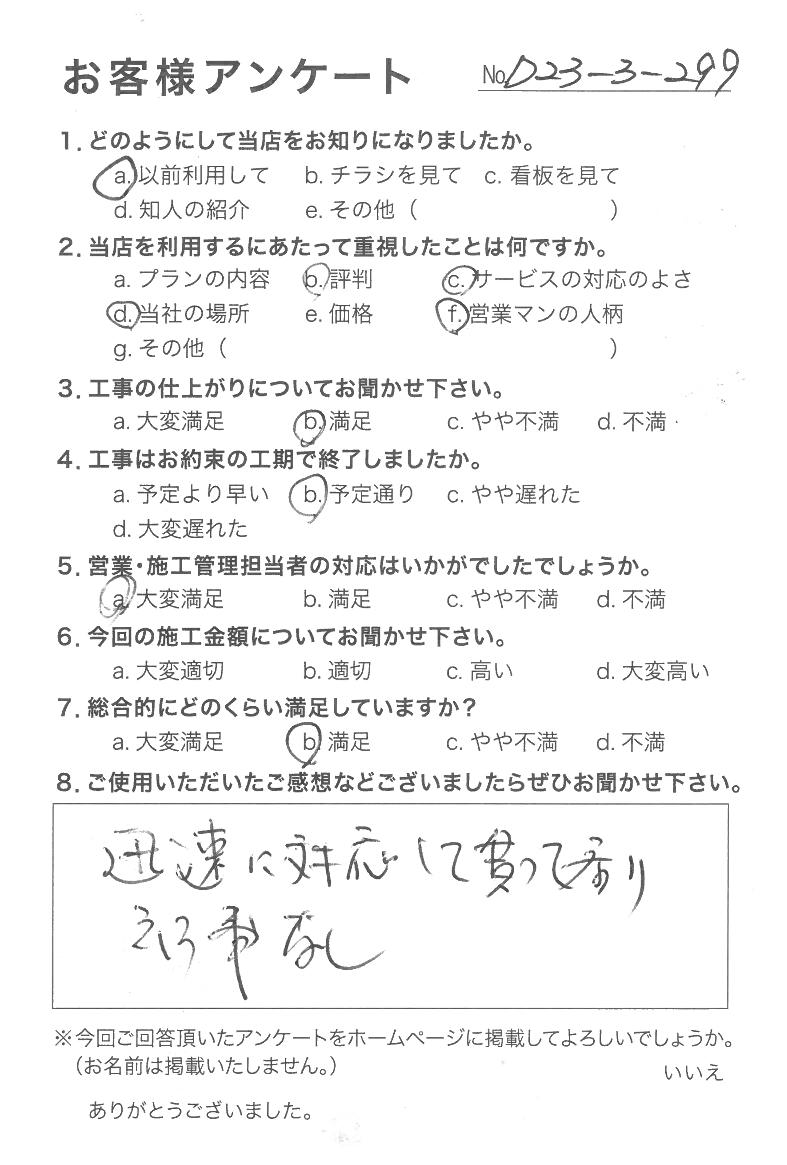 お客様アンケート No. D23-3-299
1. どのようにして当店をお知りになりましたか。
a. 以前利用して b. チラシを見て c. 看板を見て
d. 知人の紹介 e. その他( )
2. 当店を利用するにあたって重視したことは何ですか。
a. プランの内容 b. 評判 c. サービスの対応のよさ
d. 当社の場所 e. 価格 f. 営業マンの人柄
g. その他( )
3. 工事の仕上がりについてお聞かせ下さい。
a. 大変満足 b. 満足 c. やや不満 d. 不満
4. 工事はお約束の工期で終了しましたか。
a. 予定より早い b. 予定通り c. やや遅れた
d. 大変遅れた
5. 営業・施工管理担当者の対応はいかがでしたでしょうか。
a. 大変満足 b. 満足 c. やや不満 d. 不満
6. 今回の施工金額についてお聞かせ下さい。
a. 大変適切 b. 適切 c. 高い d. 大変高い
7. 総合的にどのくらい満足していますか?
a. 大変満足 b. 満足 c. やや不満 d. 不満
8. ご使用いただいたご感想などございましたらぜひお聞かせ下さい。
迅速に対応して貰って
なし
※今回ご回答頂いたアンケートをホームページに掲載してよろしいでしょうか。
(お名前は掲載いたしません。) いいえ
ありがとうございました。